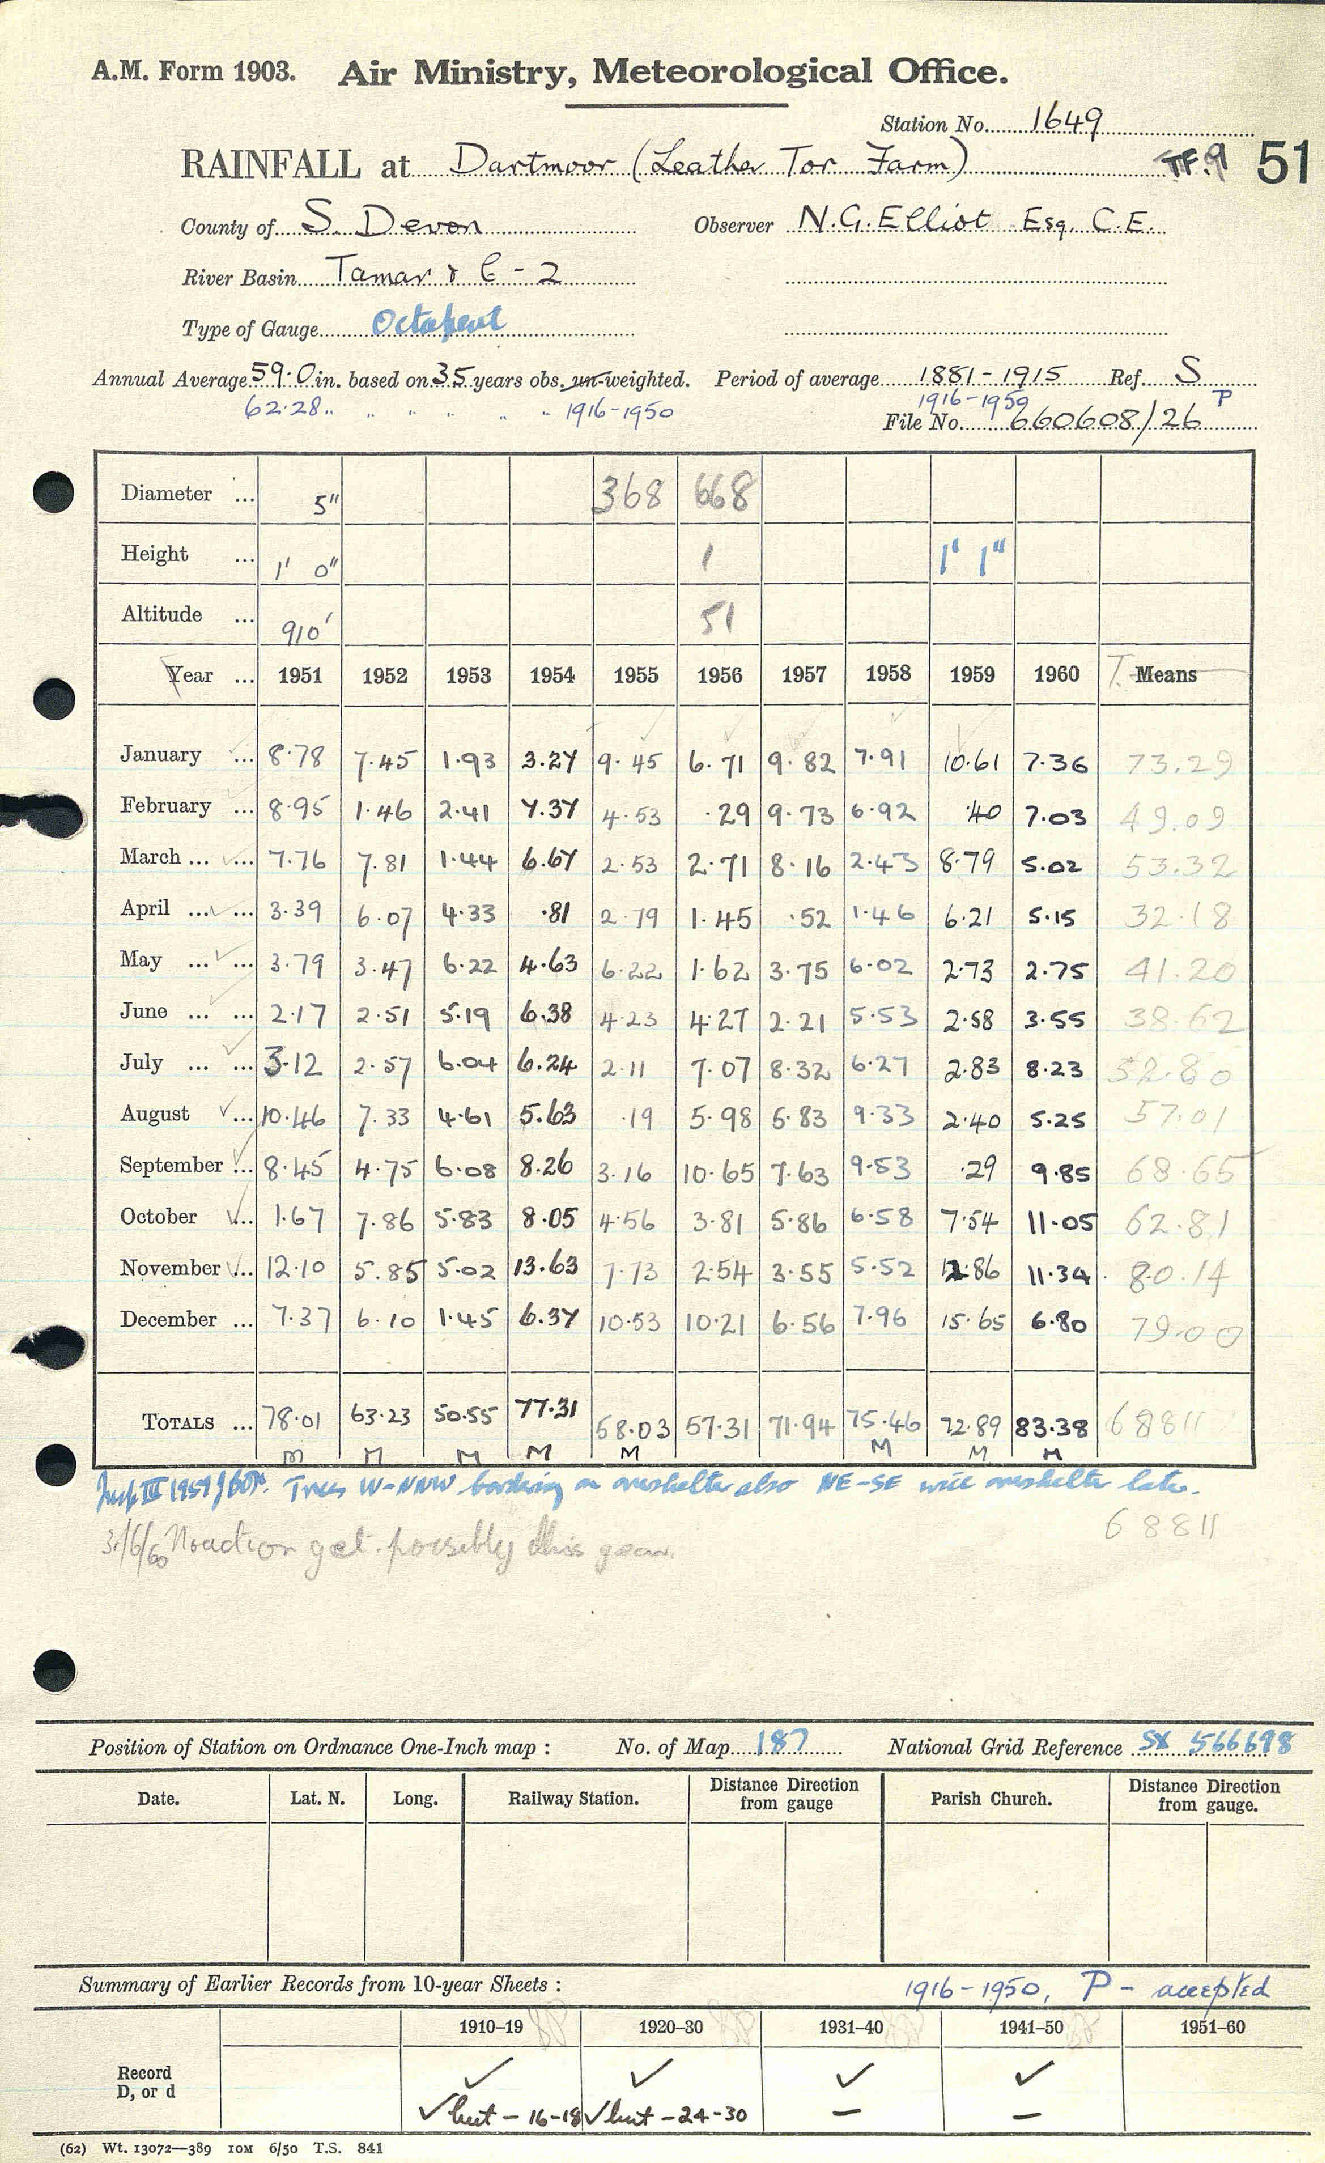 A.M. Form 1903. Air Ministry, Meteorological Office.
Station No. 1649
RAINFALL at Dartmoor (Leather Tor Farm) TF.9 51
County of S. Devon Observer N.G. Elliot Esq. C.E.
River Basin Tamar & C - 2
Type of Gauge Octapent
Annual Average 59.0 in. based on 35 years obs. un-weighted. Period of average 1881-1915 Ref. S
62.28 " " " " " " 1916-1950 1916-1950 P
File No. 660608/26
Diameter ... 5" 368 668
Height ... 1' 0" 1 1' 1"
Altitude ... 910' 51
Year ... 1951 1952 1953 1954 1955 1956 1957 1958 1959 1960 T. Means
January ... 8.78 7.45 1.93 3.27 9.45 6.71 9.82 7.91 10.61 7.36 73.29
February ... 8.95 1.46 2.41 7.37 4.53 .29 9.73 6.92 .40 7.03 49.09
March ... ... 7.76 7.81 1.44 6.67 2.53 2.71 8.16 2.43 8.79 5.02 53.32
April ... ... 3.39 6.07 4.33 .81 2.79 1.45 .52 1.46 6.21 5.15 32.18
May ... ... 3.79 3.47 6.22 4.63 6.22 1.62 3.75 6.02 2.73 2.75 41.20
June ... ... 2.17 2.51 5.19 6.38 4.23 4.27 2.21 5.53 2.58 3.55 38.62
July ... ... 3.12 2.57 6.04 6.24 2.11 7.07 8.32 6.27 2.83 8.23 52.80
August ... 10.46 7.33 4.61 5.63 .19 5.98 5.83 9.33 2.40 5.25 57.01
September ... 8.45 4.75 6.08 8.26 3.16 10.65 7.63 9.53 .29 9.85 68.65
October ... 1.67 7.86 5.83 8.05 4.56 3.81 5.86 6.58 7.54 11.05 62.81
November ... 12.10 5.85 5.02 13.63 7.73 2.54 3.55 5.52 12.86 11.34 80.14
December ... 7.37 6.10 1.45 6.37 10.53 10.21 6.56 7.96 15.65 6.80 79.00
TOTALS ... 78.01 63.23 50.55 77.31 58.03 57.31 71.94 75.46 72.89 83.38 68811
M M M M M M M M
Insp III 1959 Trees W-NNW bordering on overshelter also NE-SE will overshelter later.
68811
3/6/60 No action yet. possibly this year.
Position of Station on Ordnance One-Inch map : No. of Map 187 National Grid Reference SX 566698
Date. Lat. N. Long. Railway Station. Distance Direction from gauge Parish Church. Distance Direction from gauge.
Summary of Earlier Records from 10-year Sheets : 1916-1950, P - accepted
1910-19 1920-30 1931-40 1941-50 1951-60
Record D, or d ✓ ✓ ✓ ✓
✓ but - 16-18 ✓ but - 24-30 — —
(62) Wt. 13072—389 10M 6/50 T.S. 841